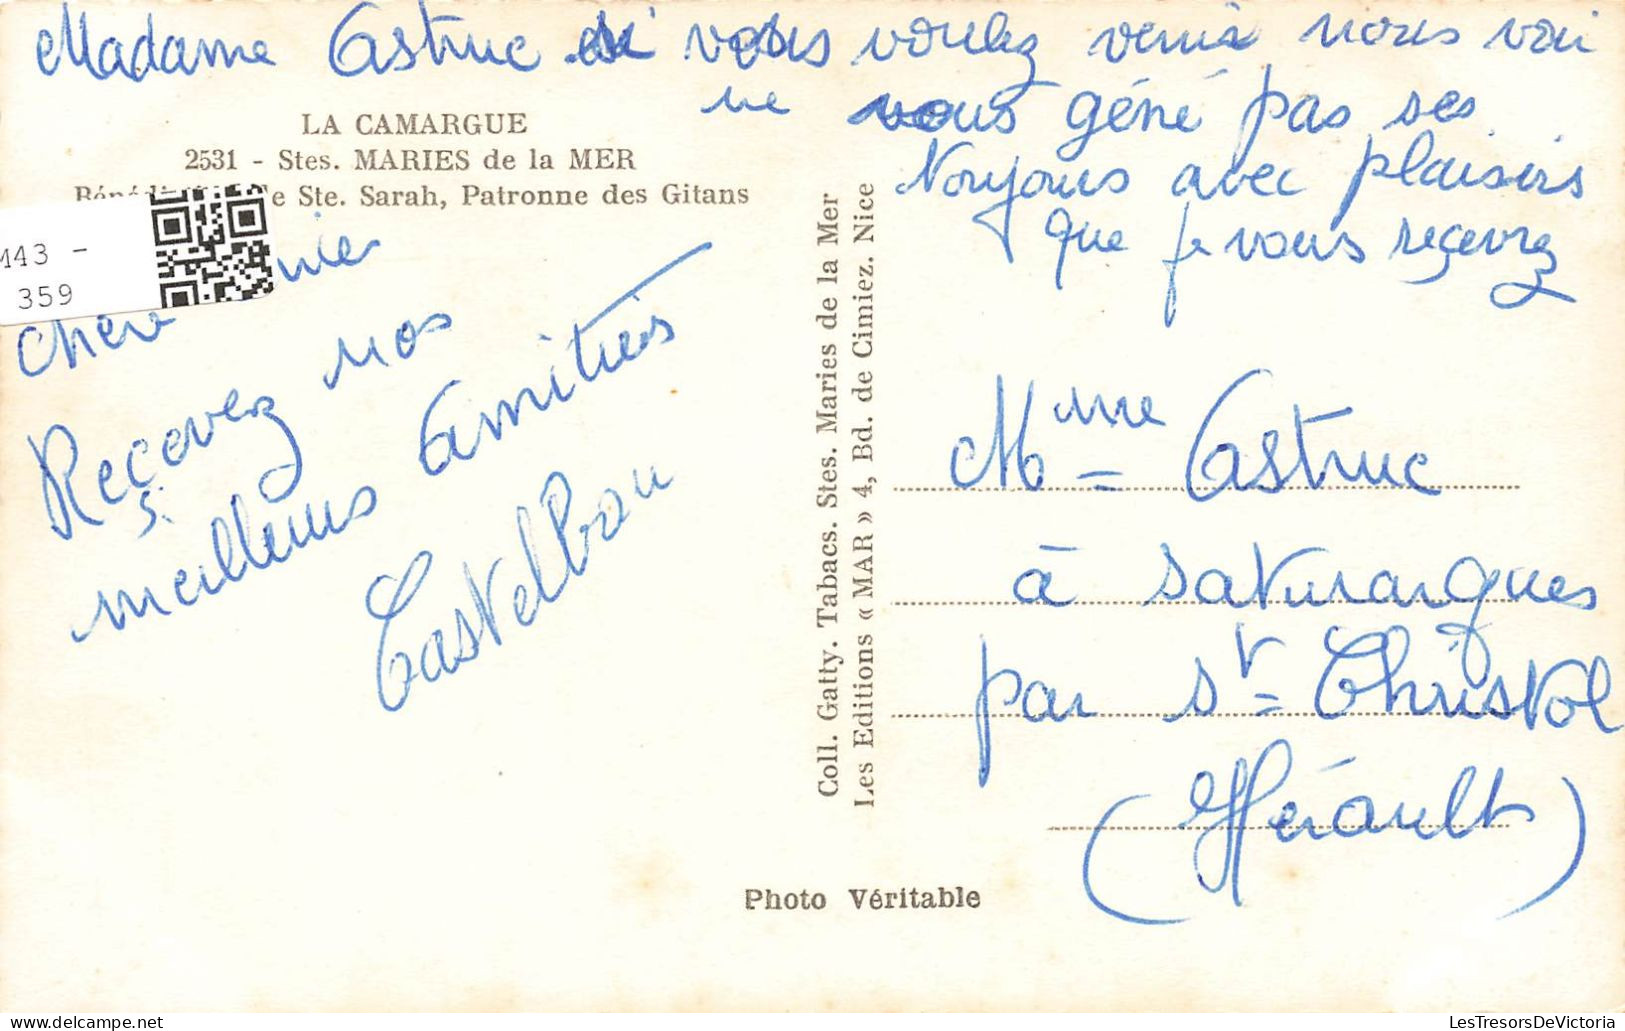 Madame Castruc si vous voulez venir nous voir
ne vous géné pas ses
Toujours avec plaisirs
que je vous reçevrez
LA CAMARGUE
2531 - Stes. MARIES de la MER
Ste. Sarah, Patronne des Gitans
M43 -
359
Chère
Reçevez nos
meilleurs amitiés
Castelbou
Coll. Gatty. Tabacs. Stes. Maries de la Mer
Les Editions « MAR » 4, Bd. de Cimiez. Nice
Mme Castruc
à Saturargues
par St Christol
(Hérault)
Photo Véritable
LesTresorsDeVictoria